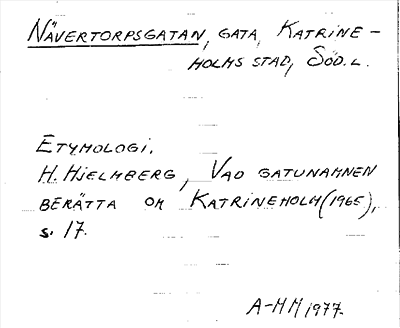 NÄVERTORPSGATAN, GATA, KATRINE-
HOLMS STAD, SÖD.L.
ETYMOLOGI.
H. HJELMBERG, VAD GATUNAMNEN
BERÄTTA OM KATRINEHOLM (1965),
s. 17.
A-MM 1977.